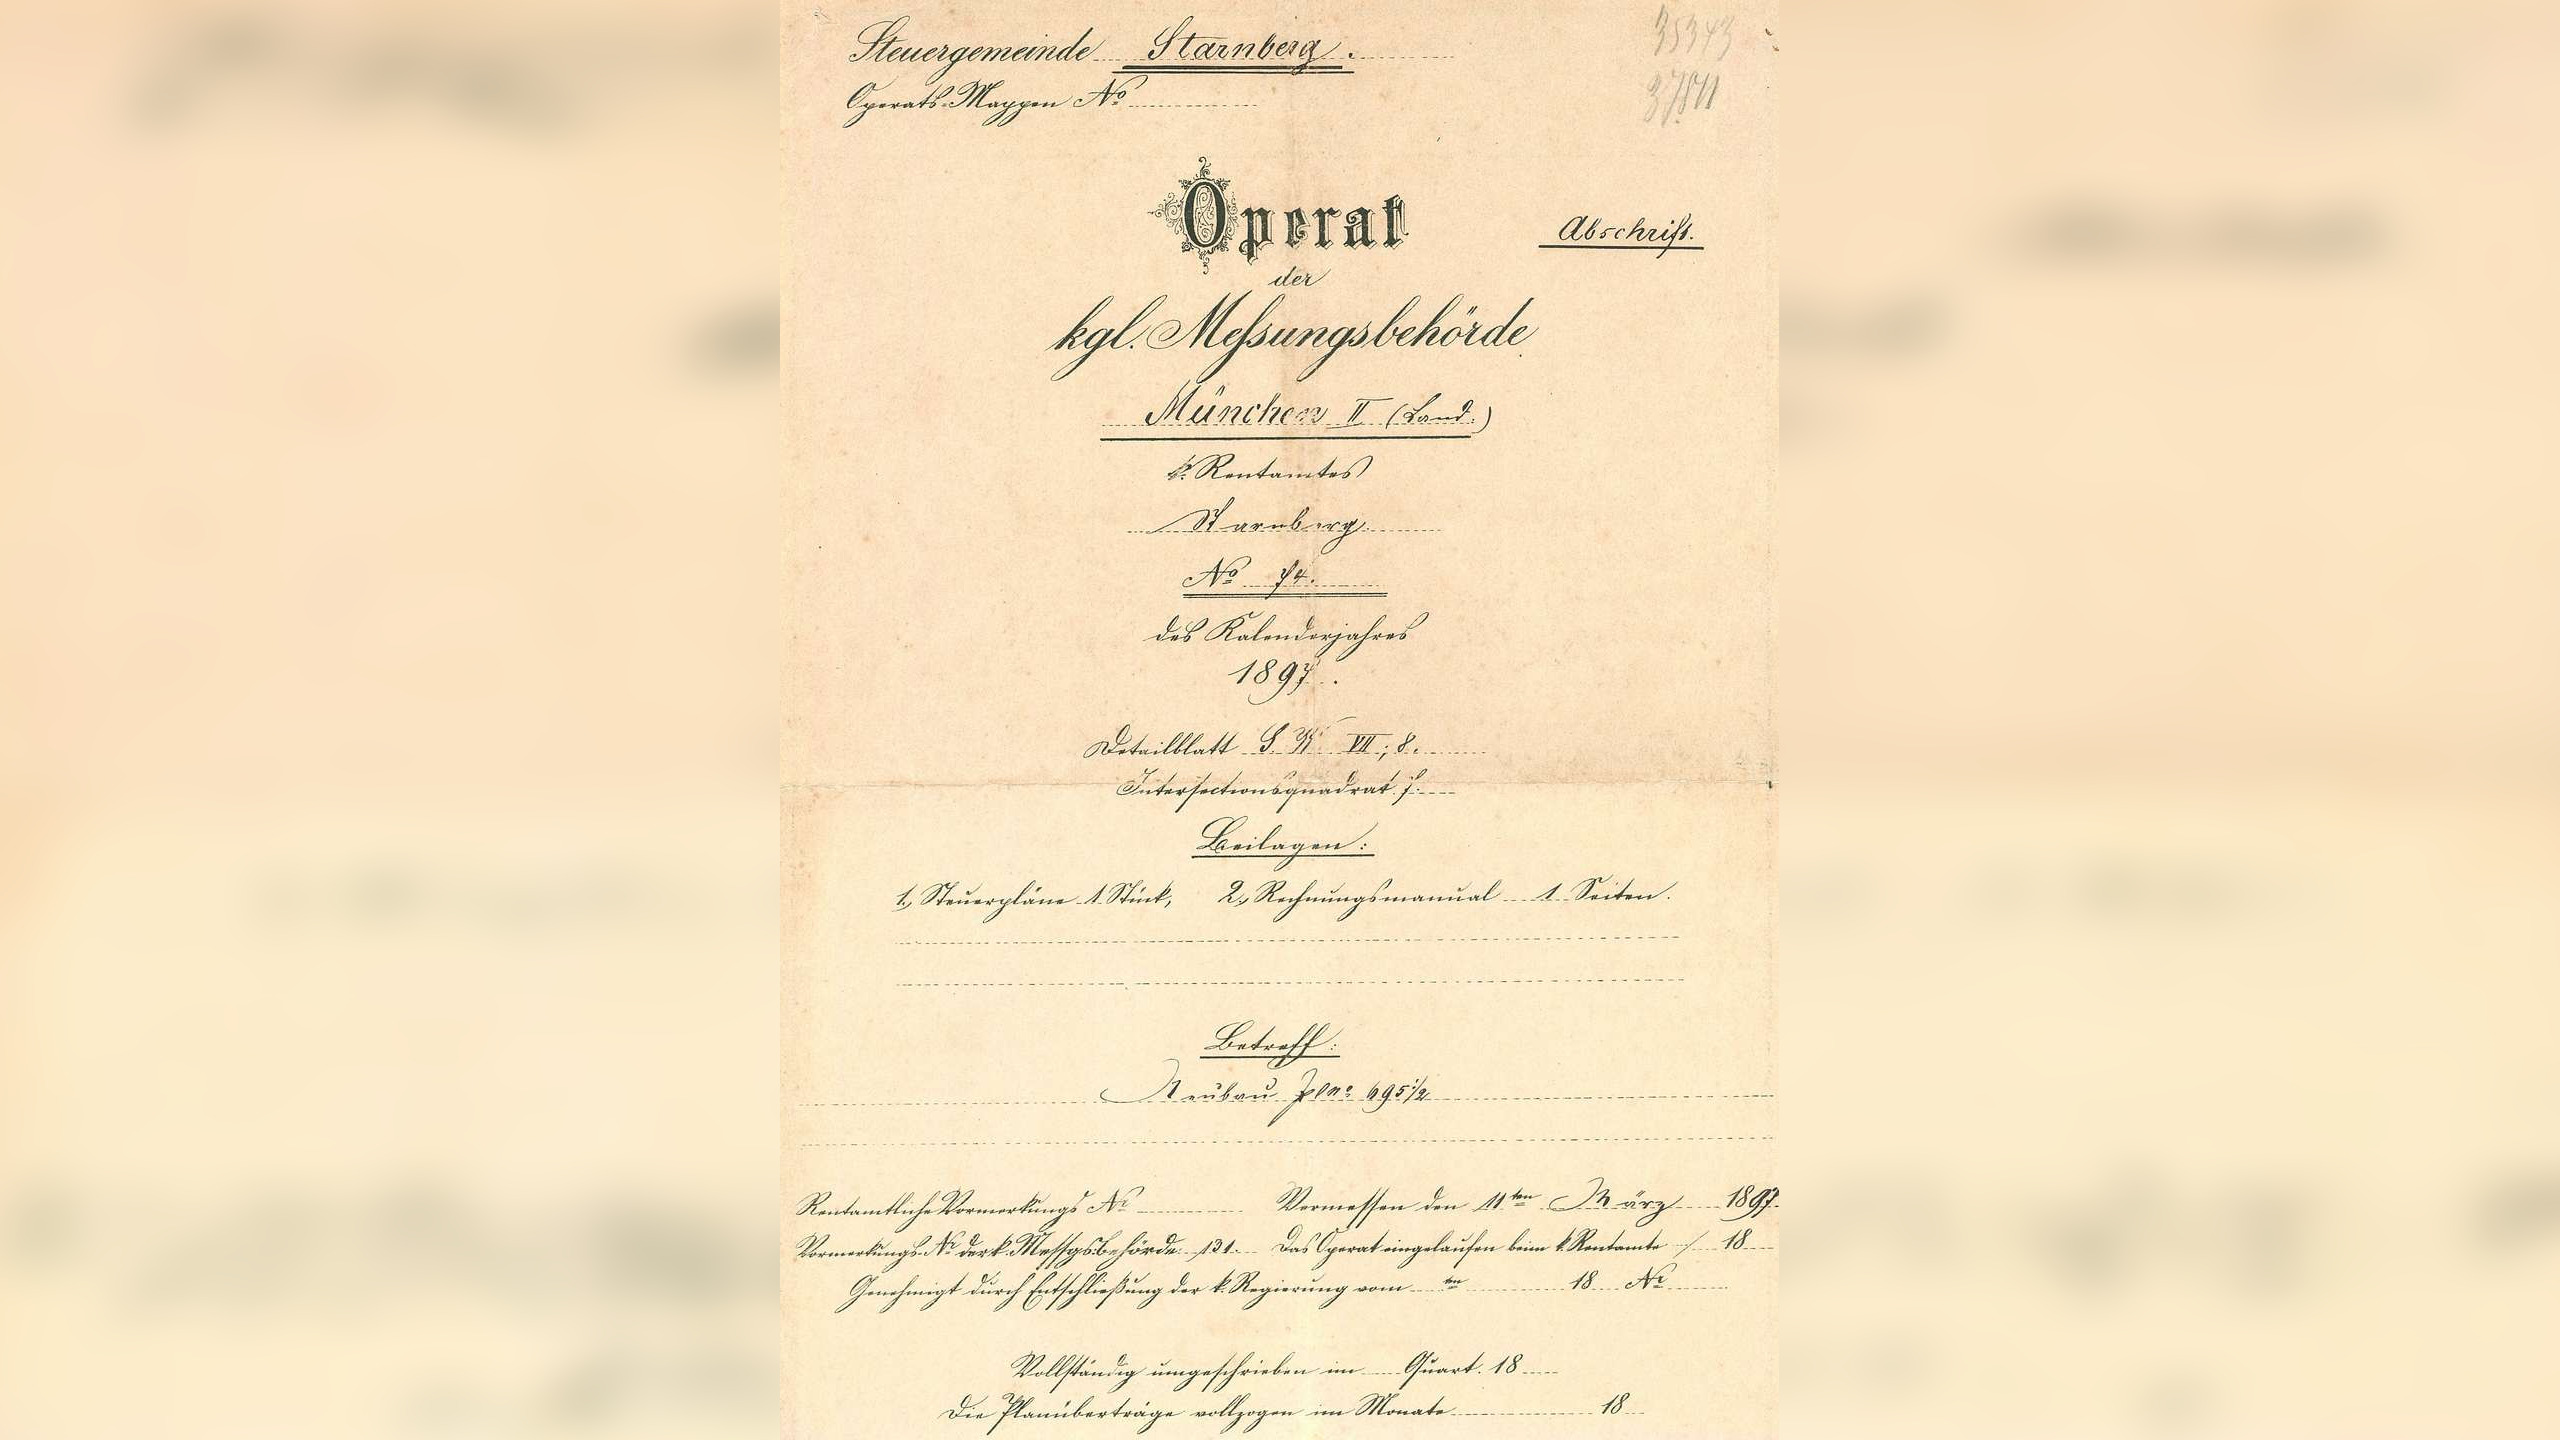 Steuergemeinde Starnberg.
Operats-Mappen No
Operat
Abschrift.
der
kgl. Messungsbehörde
München II (Land.)
k. Rentamtes
Starnberg.
No 74.
des Kalenderjahres
1897.
Detailblatt S. W. VII, 8.
Intersectionsquadrat f.
Beilagen:
1, Steuerpläne 1 Stück, 2, Rechnungsmanual 1 Seiten.
Betreff:
Neubau Plno 695 1/2
Rentamtliche Vormerkungs No Vermessen den 11ten März 1897.
Vormerkungs-No der k. Messgsbehörde 131. Das Operat eingelaufen beim k. Rentamte / 18
Genehmigt durch Entschließung der k. Regierung vom ten 18 No
Vollständig umgeschrieben im Quart. 18
Die Planüberträge vollzogen im Monate 18